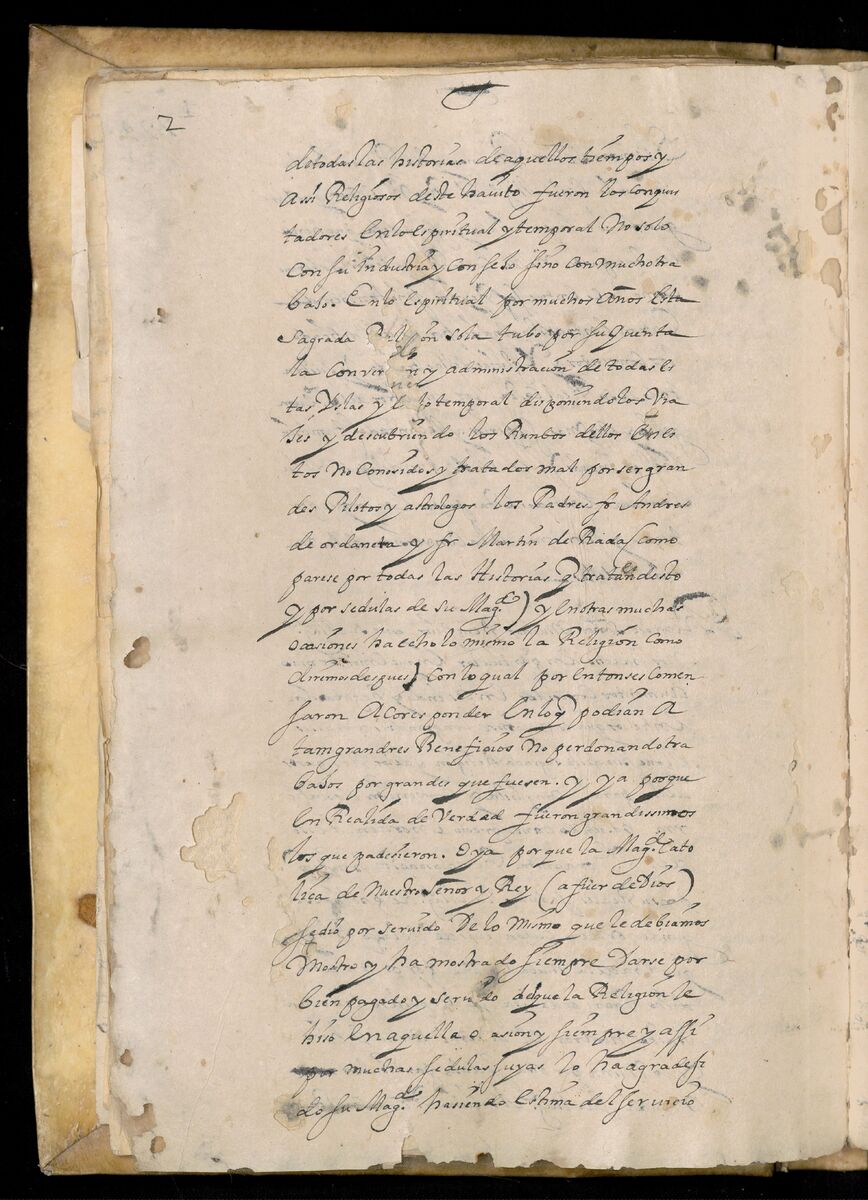 2
de todas las historias de aquellos tiempos y
Assi Religiosos deste hauito fueron los Conquis
tadores En lo espiritual y temporal No solo
Con su industria y Consejo sino Con mucho tra
bajo. En lo Espiritual por muchos Años Esta
Sagrada sola tubo por su quenta
la y administracion de todas Es
tas Yslas y lo temporal disponiendo los Via
jes y descubriendo los Runbos dellos
tos No Conosidos y tratados mal por ser gran
des Pilotos y astrologos los Padres fr Andres
de ordaneta y fr Martin de Rada (Como
parese por todas las Historias q tratan desto
y por sedulas de su Mag.d) y En otras muchas
ocasiones ha echo lo mismo la Religion Como
diremos despues) Con lo qual por Entonses Comen
saron A Coresponder En lo q podian A
tam grandres Benefiçios No perdonando tra
bajos por grandes que fuesen. y ya porque
En Realida de Verdad fueron grandissimos
los que padesieron. O ya por que la Mag.d Cato
lica de Nuestro Señor y Rey (a fuer de Dios)
se dio por seruido De lo Mismo que le debiamos
Mostro y ha mostrado siempre Darse por
bien pagado y de que la Religion le
hiso En aquella y siempre y assi
por muchas sedulas suyas lo ha agradesi
do su Mag.d hasiendo Estima del Servicio